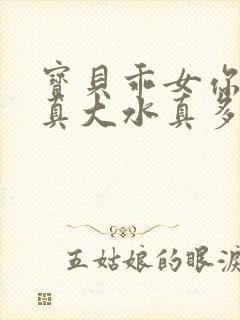 寶貝乖女你
真大水真多
五姑娘的眼淚